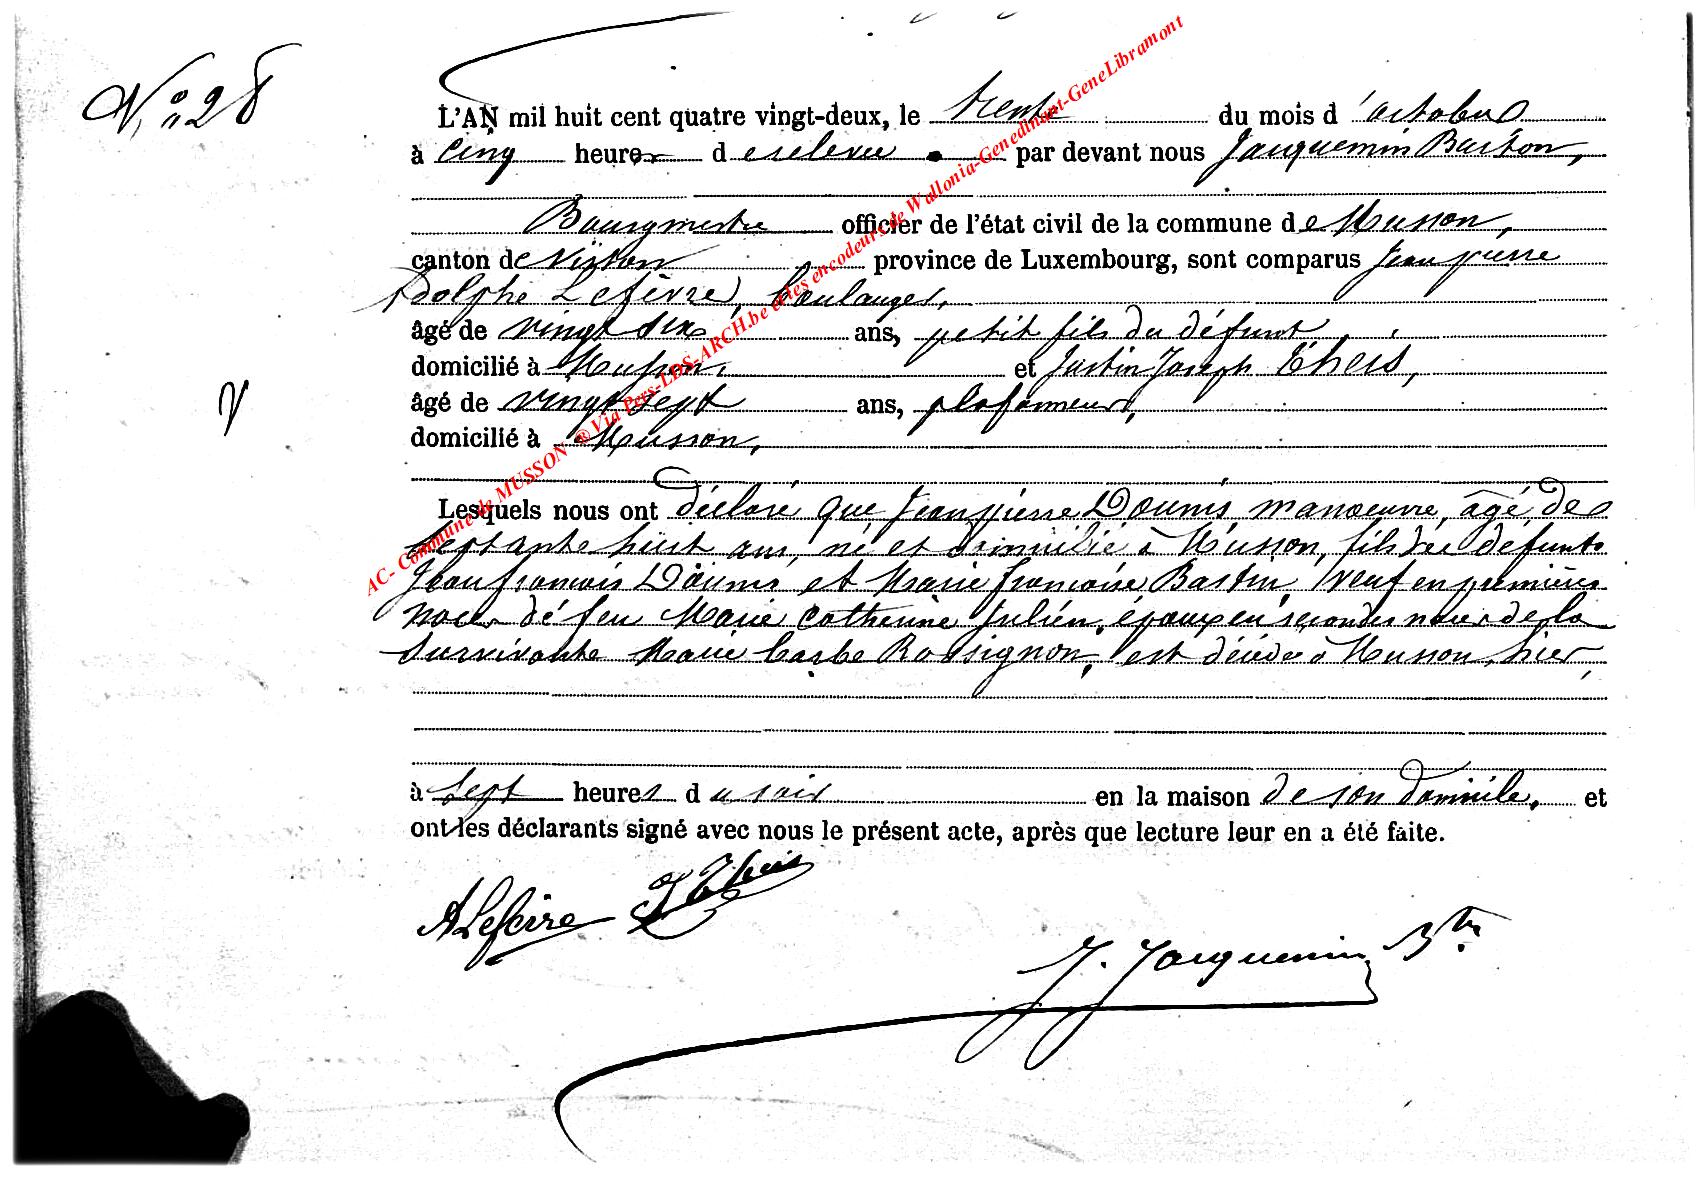 N° 28
L'AN mil huit cent quatre vingt-deux, le trente du mois d'octobre
à cinq heures de relevée par devant nous Jacquemin Baston,
Bourgmestre officier de l'état civil de la commune de Musson,
canton de Virton province de Luxembourg, sont comparus Jean pierre
Adolphe Lefèvre, boulanger,
âgé de vingt six ans, petit fils du défunt,
domicilié à Musson, et Justin Joseph Theis,
âgé de vingt sept ans, plafonneur,
domicilié à Musson,
Lesquels nous ont déclaré que Jean pierre Dounis, manoeuvre, âgé de
septante huit ans, né et domicilié à Musson, fils des défunts
Jean françois Dounis et Marie françoise Bastin, veuf en premières
noces de feu Marie Catherine Julien, époux en secondes noces de la
survivante Marie barbe Rossignon, est décédé à Musson, hier,
à sept heures du soir en la maison de son domicile, et
ont les déclarants signé avec nous le présent acte, après que lecture leur en a été faite.
A Lefèvre J Theis
J. Jacquemin Btre
AC- Commune de MUSSON ® Via Pers-LDS-ARCH.be et les encodeurs de Wallonia-Genedinant-GeneLibramont